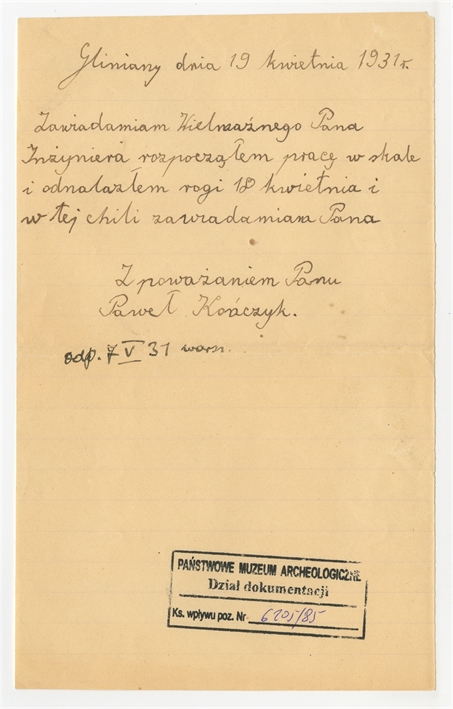 Gliniany dnia 19 kwietnia 1931 r.
Zawiadamiam Wielmożnego Pana
Inżyniera rozpocząłem pracę w skale
i odnalazłem rogi 18 kwietnia i
w tej chili zawiadamiam Pana
Z poważaniem Panu
Paweł Kończyk.
odp. 7 V 31 warsz.
PAŃSTWOWE MUZEUM ARCHEOLOGICZNE
Dział dokumentacji
Ks. wpływu poz. Nr 6205/85